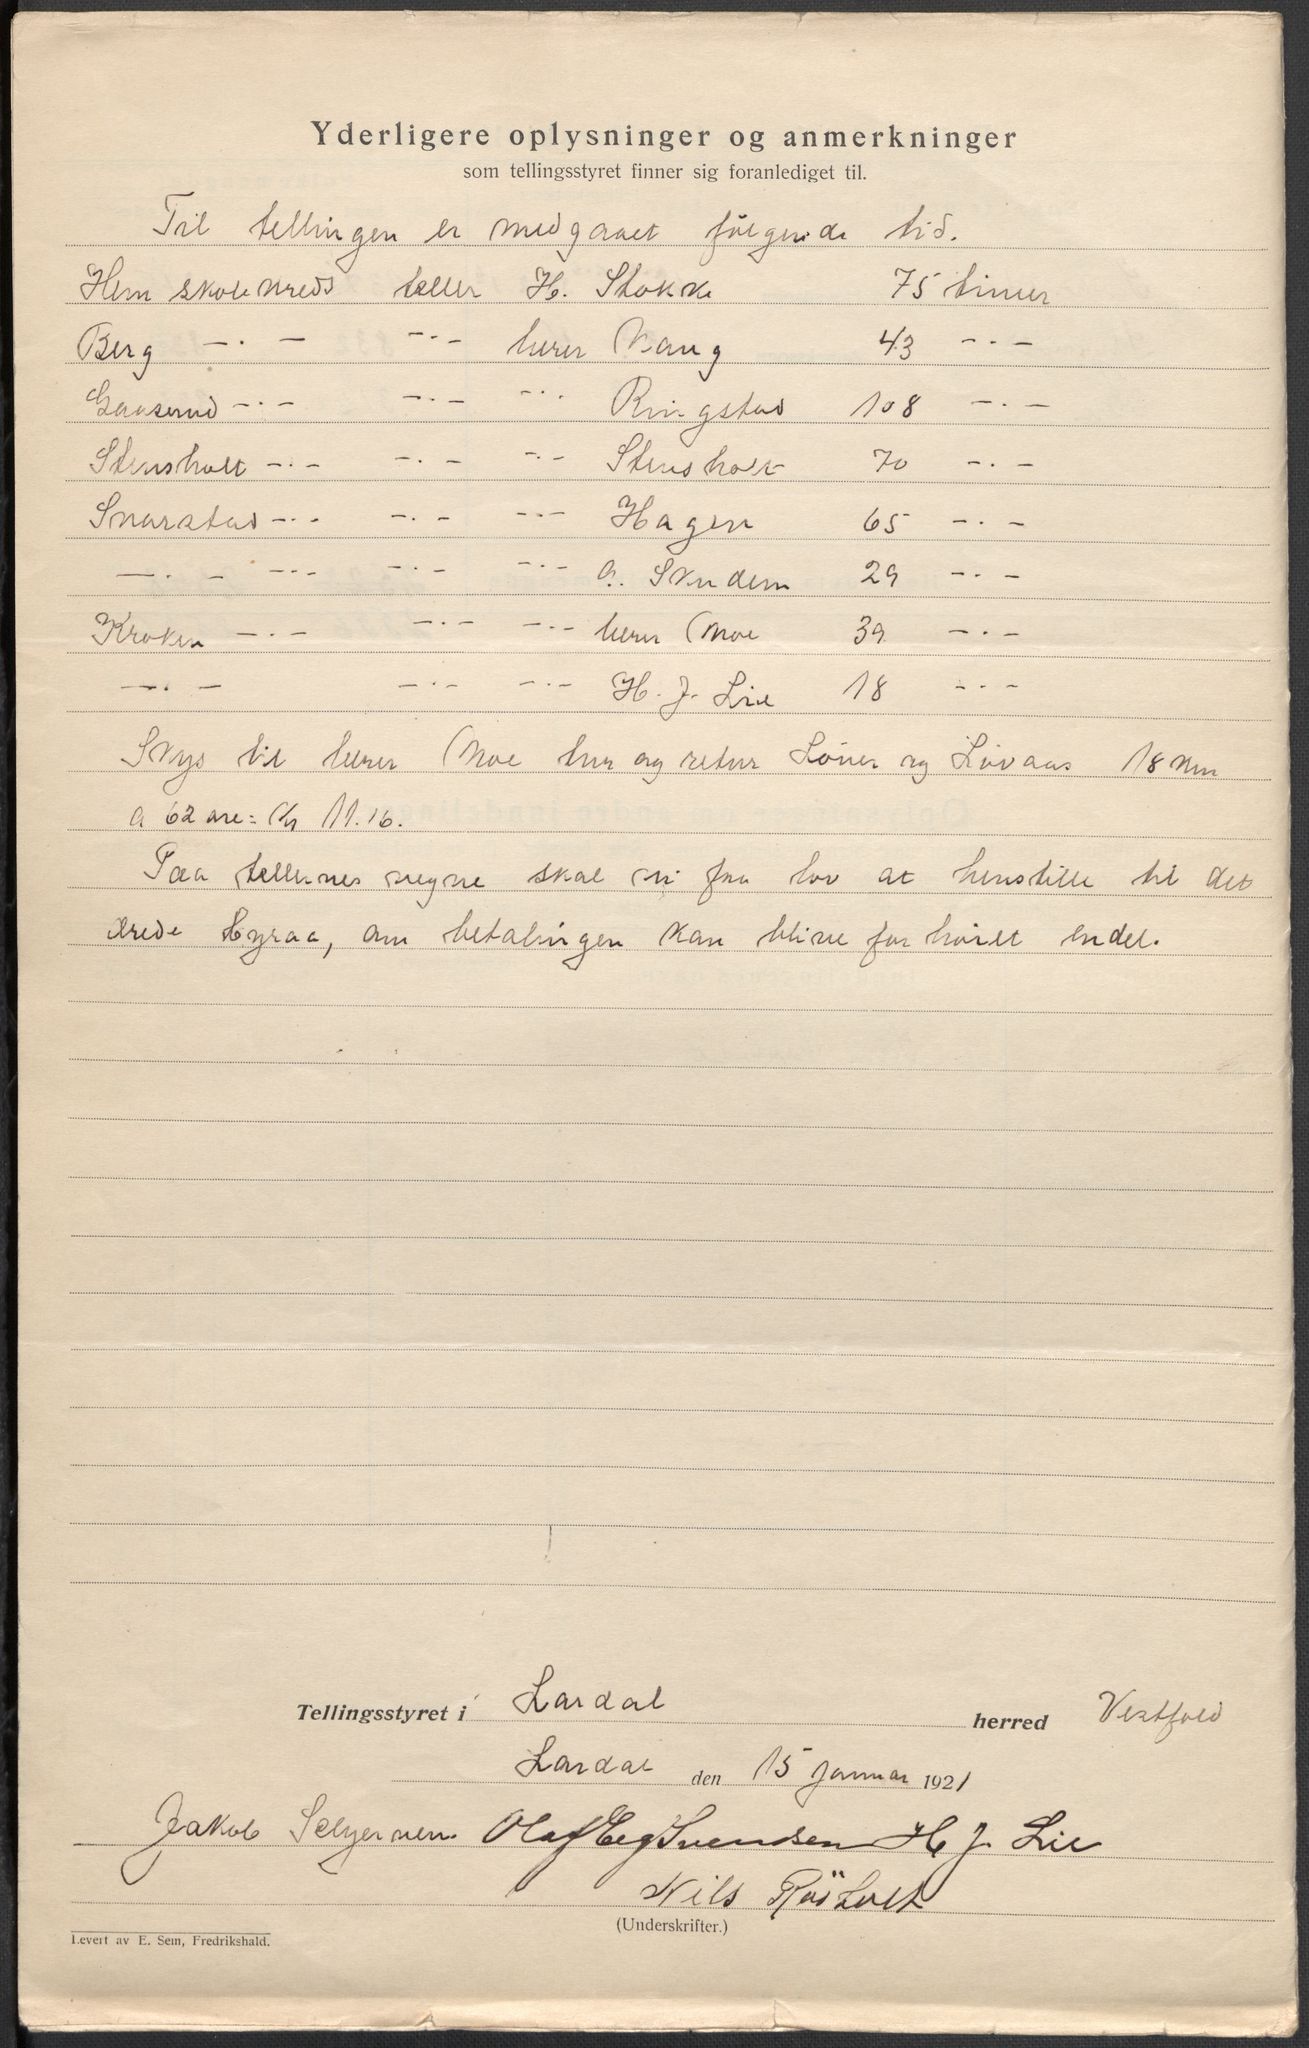 Yderligere oplysninger og anmerkninger
som tellingsstyret finner sig foranlediget til.
Til tellingen er medgaaet følgende tid.
Hem skolekreds teller H. Stokke 75 timer
Berg -·- -·- lærer Vaug 43 -·-
Gaaserud -·- -·- -·- Ringstad 108 -·-
Stensholt -·- -·- -·- Stensholt 70 -·-
Snarstad -·- -·- -·- Hagen 65 -·-
-·- -·- -·- -·- a. 29 -·-
Kroken -·- -·- -·- lærer Moe 39 -·-
-·- -·- -·- H. J. Lie 18 -·-
Skys til lærer Moe tur og retur og Løvaas 18 km
a 62 øre = Kr 11.16.
Paa tellernes vegne skal vi faa lov at henstille til det
ærede Byraa, om betalingen kan blive forhøiet endel.
Tellingsstyret i Lardal herred Vestfold
Lardal den 15 januar 1921
Jakob Olaf Berg Svendsen H J. Lie
Nils Røsholt
(Underskrifter.)
Levert av E. Sem, Fredrikshald.